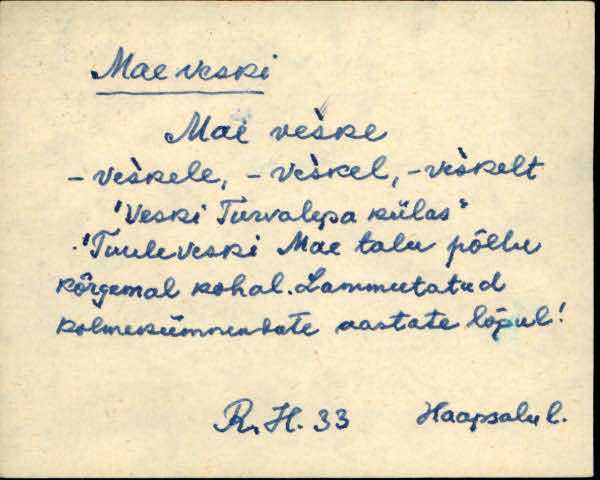 Mae veski
Mae vèske
- vèskele, - vèskel, - vèskelt
"Veski Turvalepa külas"
"Tuuleveski Mae talu põllu
kõrgemal kohal. Lammutatud
kolmekümnendate aastate lõpul!
R. H. 33 Haapsalu l.